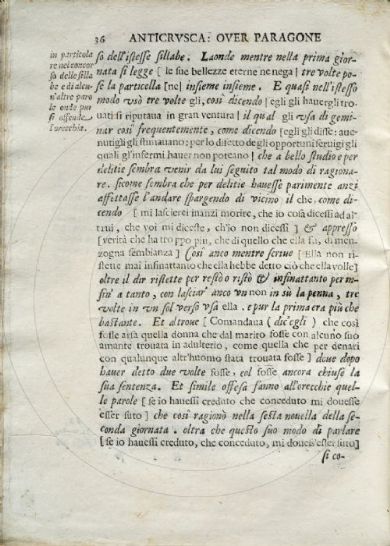 36 ANTICRVSCA: OVER PARAGONE
in particola
re nel concor
so delle silla
be e di alcu-
n'altre paro
le onde pur
si offende
l'orecchia.
so dell'istesse sillabe. Laonde mentre nella prima gior-
nata si legge [ le sue bellezze eterne ne nega ] tre volte po-
se la particella [ne] insieme insieme. E quasi nell'istesso
modo vsò tre volte gli, così dicendo [ egli gli hauergli tro-
uati si riputaua in gran ventura ] il qual gli vsa di gemi-
nar così frequentemente, come dicendo [ egli gli disse: aue-
nutigli gli stimauano; per lo diretto degli opportuni seruigi gli
quali gl'infermi hauer non poteano ] che a bello studio e per
delitie sembra venir da lui seguito tal modo di ragiona-
re. sicome sembra che per delitie hauesse parimente anzi
affettasse l'andare spargendo di vicino il che, come di-
cendo [ mi lascierei inanzi morire, che io cosa dicessi ad al-
trui, che voi mi diceste, ch'io non dicessi ] & appresso
[ verità che ha troppo più, che di quello che ella fia, di men-
zogna sembianza ] Così anco mentre scriue [ Ella non ri-
stette mai insinattanto che ella hebbe detto ciò che ella volle ]
oltre il dir ristette per restò o ristò & insinattanto per in-
sin' a tanto, con lasciar anco vn non in sù la penna, tre
volte in vn sol verso vsa ella. e pur la prima era più che
bastante. Et altroue [ Comandaua ( dic'egli ) che così
fosse arsa quella donna che dal marito fosse con alcuno suo
amante trouata in adulterio, come quella che per denari
con qualunque altr'huomo stata trouata fosse ] doue dopo
hauer detto due volte fosse, col fosse ancora chiuse la
sua sentenza. Et simile offesa fanno all'orecchie quel-
le parole [ se io hauessi creduto che conceduto mi douesse
esser suto ] che così ragionò nella sesta nouella della se-
conda giornata. oltra che questo suo modo di parlare
[ se io hauessi creduto, che conceduto, mi douess'esser suto]
si co-